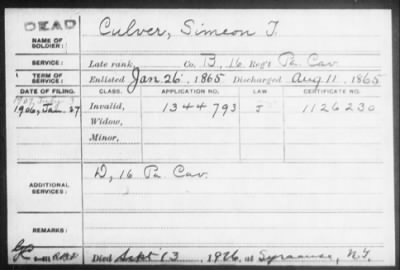 DEAD
NAME OF SOLDIER: Culver, Simeon T.
SERVICE: Late rank, Co. B, 16 Reg't Pa. Cav.
TERM OF SERVICE: Enlisted Jan. 26, 1865 Discharged Aug 11, 1865
DATE OF FILING. CLASS. APPLICATION NO. LAW CERTIFICATE NO.
1906, Jan. 27 Invalid, 1344793 1126230
Widow,
Minor,
ADDITIONAL SERVICES: D, 16 Pa Cav.
REMARKS:
Died Sept 13, 1926, at Syracuse, N.Y.